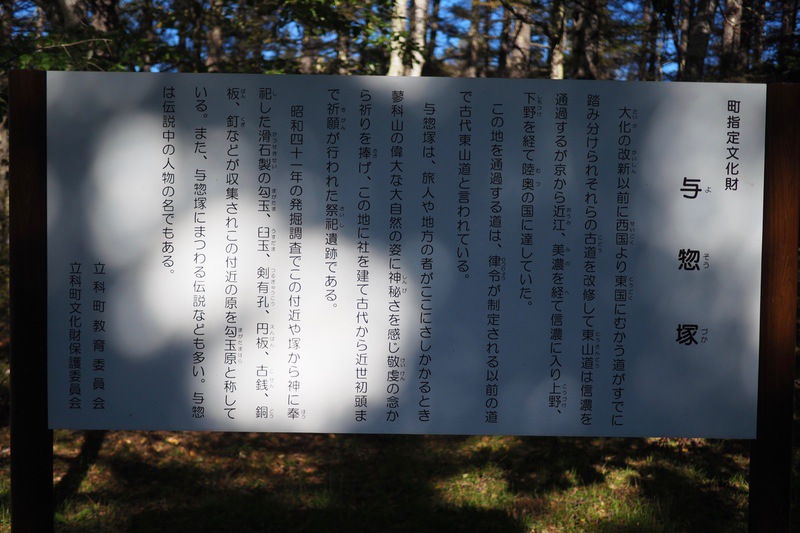 町指定文化財
与惣塚
よそうづか
大化の改新以前に西国より東国にむかう道がすでに
踏み分けられそれらの古道を改修して東山道は信濃を
通過するが京から近江、美濃を経て信濃に入り上野、
下野を経て陸奥の国に達していた。
この地を通過する道は、律令が制定される以前の道
で古代東山道と言われている。
与惣塚は、旅人や地方の者がここにさしかかるとき
蓼科山の偉大な大自然の姿に神秘さを感じ敬虔の念か
ら祈りを捧げ、この地に社を建て古代から近世初頭ま
で祈願が行われた祭祀遺跡である。
昭和四十一年の発掘調査でこの付近や塚から神に奉
祀した滑石製の勾玉、臼玉、剣有孔、円板、古銭、銅
板、釘などが収集されこの付近の原を勾玉原と称して
いる。また、与惣塚にまつわる伝説なども多い。与惣
は伝説中の人物の名でもある。
立科町教育委員会
立科町文化財保護委員会